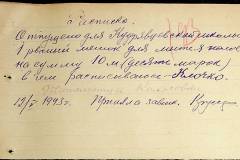 Расписка.
Отпущено для Кудрявцевской школы
1 рваный мешок для мытья полов
на сумму 10 м (десять марок)
в чем расписываюсь Клочко.
1943 г. Принял завхоз.